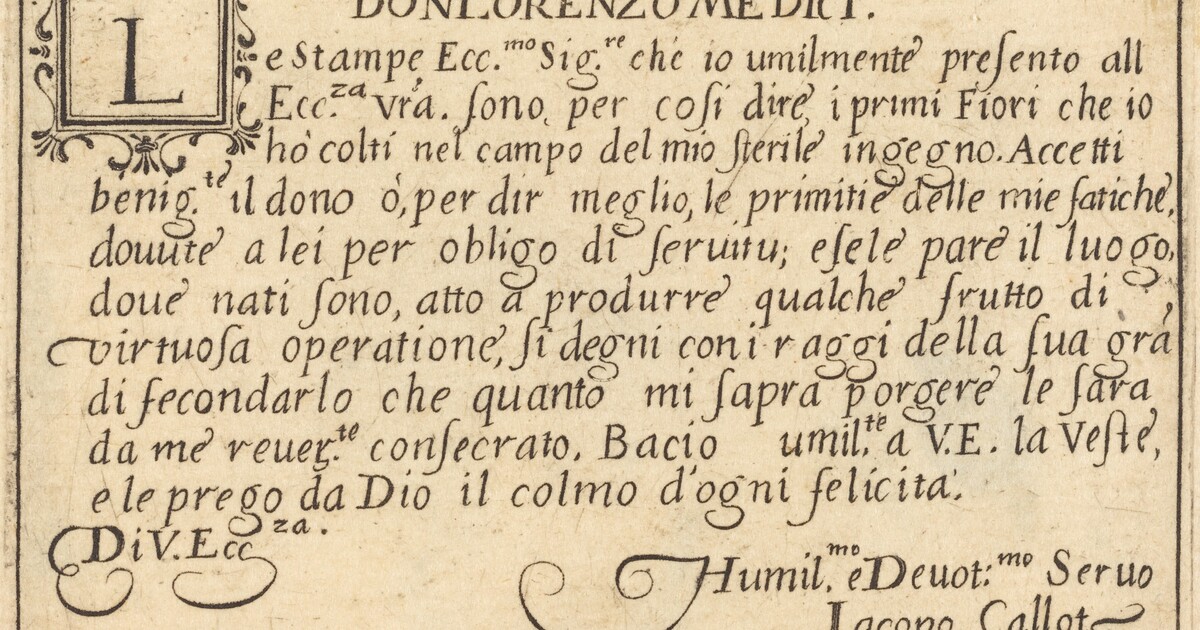 DON LORENZO MEDICI.
Le Stampe Ecc.mo Sig.re che io umilmente preſento all
Ecc.za vr̃a. ſono, per coſi dire, i primi Fiori che io
hò colti nel campo del mio ſterile ingegno. Accetti
benig.te il dono ò, per dir meglio, le primitie delle mie fatiche,
douute a lei per obligo di ſeruitu; eſele pare il luogo,
doue nati ſono, atto à produrre qualche frutto di
virtuoſa operatione, ſi degni con i raggi della ſua grã
di fecondarlo che quanto mi ſaprà porgere le ſarà
da me reuer.te conſecrato. Bacio umil.te a V.E. la Veſte,
e le prego da Dio il colmo d'ogni felicità.
Di V. Ecc.za.
Humil.mo e Deuot:mo Seruo
Iacopo Callot